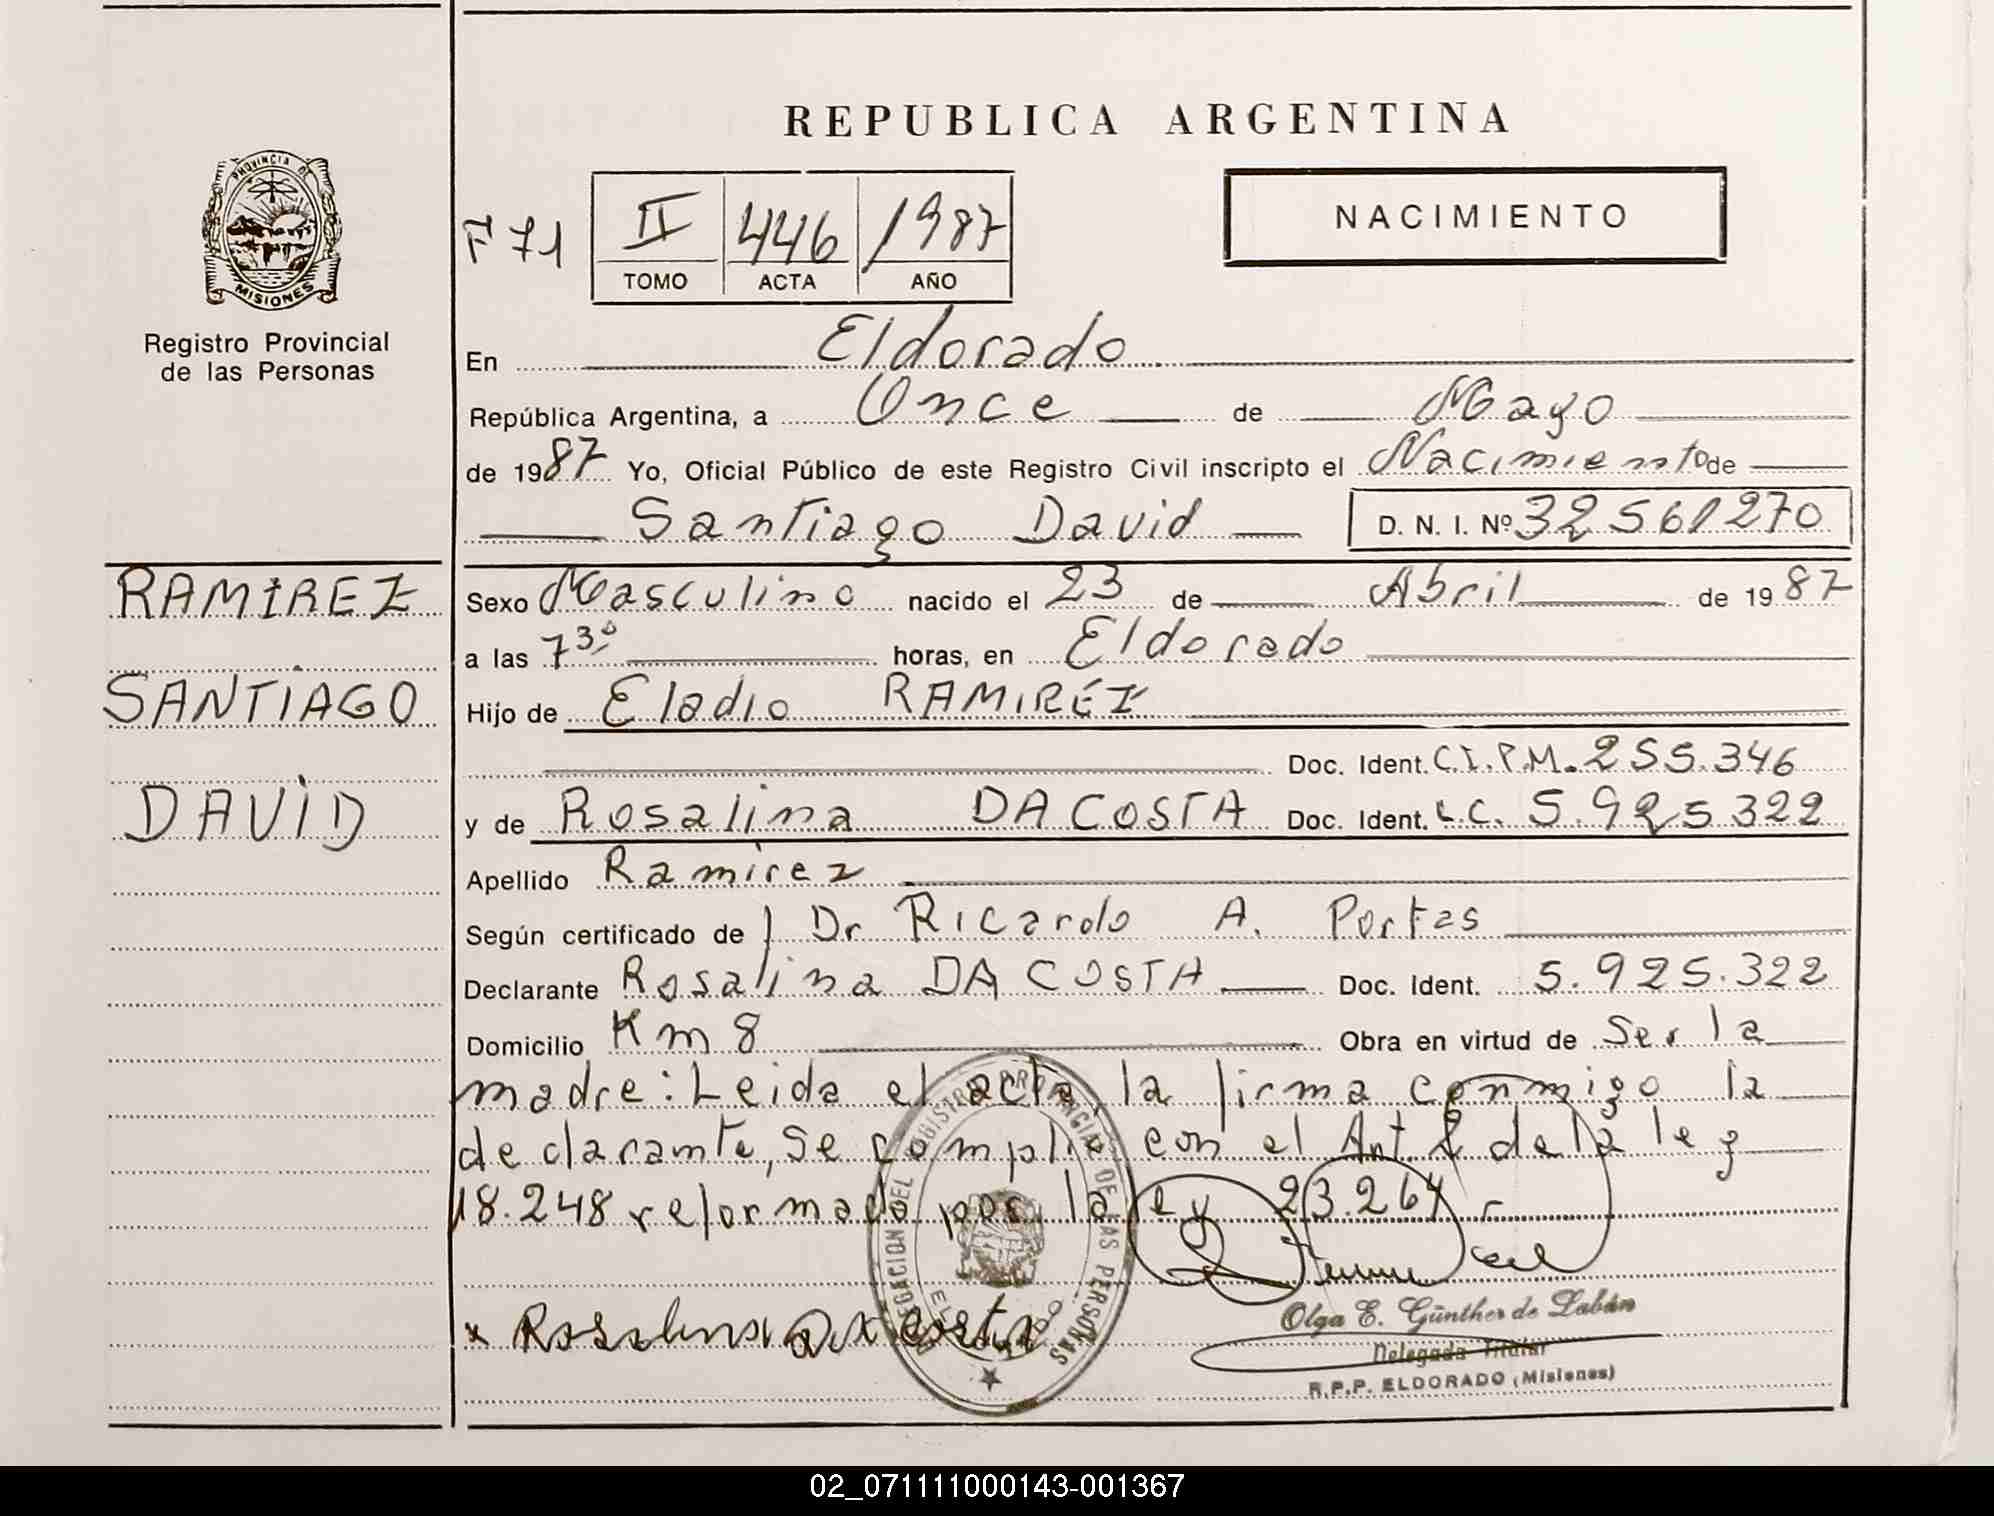 REPUBLICA ARGENTINA
PROVINCIA DE
MISIONES
Registro Provincial
de las Personas
F 71
II 446 1987
TOMO ACTA AÑO
NACIMIENTO
En Eldorado
República Argentina, a Once de Mayo
de 1987 Yo, Oficial Público de este Registro Civil inscripto el Nacimiento de
Santiago David D. N. I. Nº 32561270
RAMIREZ
SANTIAGO
DAVID
Sexo Masculino nacido el 23 de Abril de 1987
a las 7³⁰ horas, en Eldorado
Hijo de Eladio RAMIREZ
Doc. Ident. C.I.P.M. 255.346
y de Rosalina DA COSTA Doc. Ident. L.C. 5.925.322
Apellido Ramirez
Según certificado de Dr Ricardo A. Portas
Declarante Rosalina DA COSTA Doc. Ident. 5.925.322
Domicilio Km 8 Obra en virtud de Ser la
madre: Leida el acta, la firma conmigo la
declarante, Se complio con el Art 2 de la ley
18.248 reformado por la ley 23.264
DELEGACION DEL REGISTRO PROVINCIAL DE LAS PERSONAS
ELDORADO
x Rosalina Da Costa
Olga E. Günther de Labán
Delegada Titular
R.P.P. ELDORADO (Misiones)
02_071111000143-001367